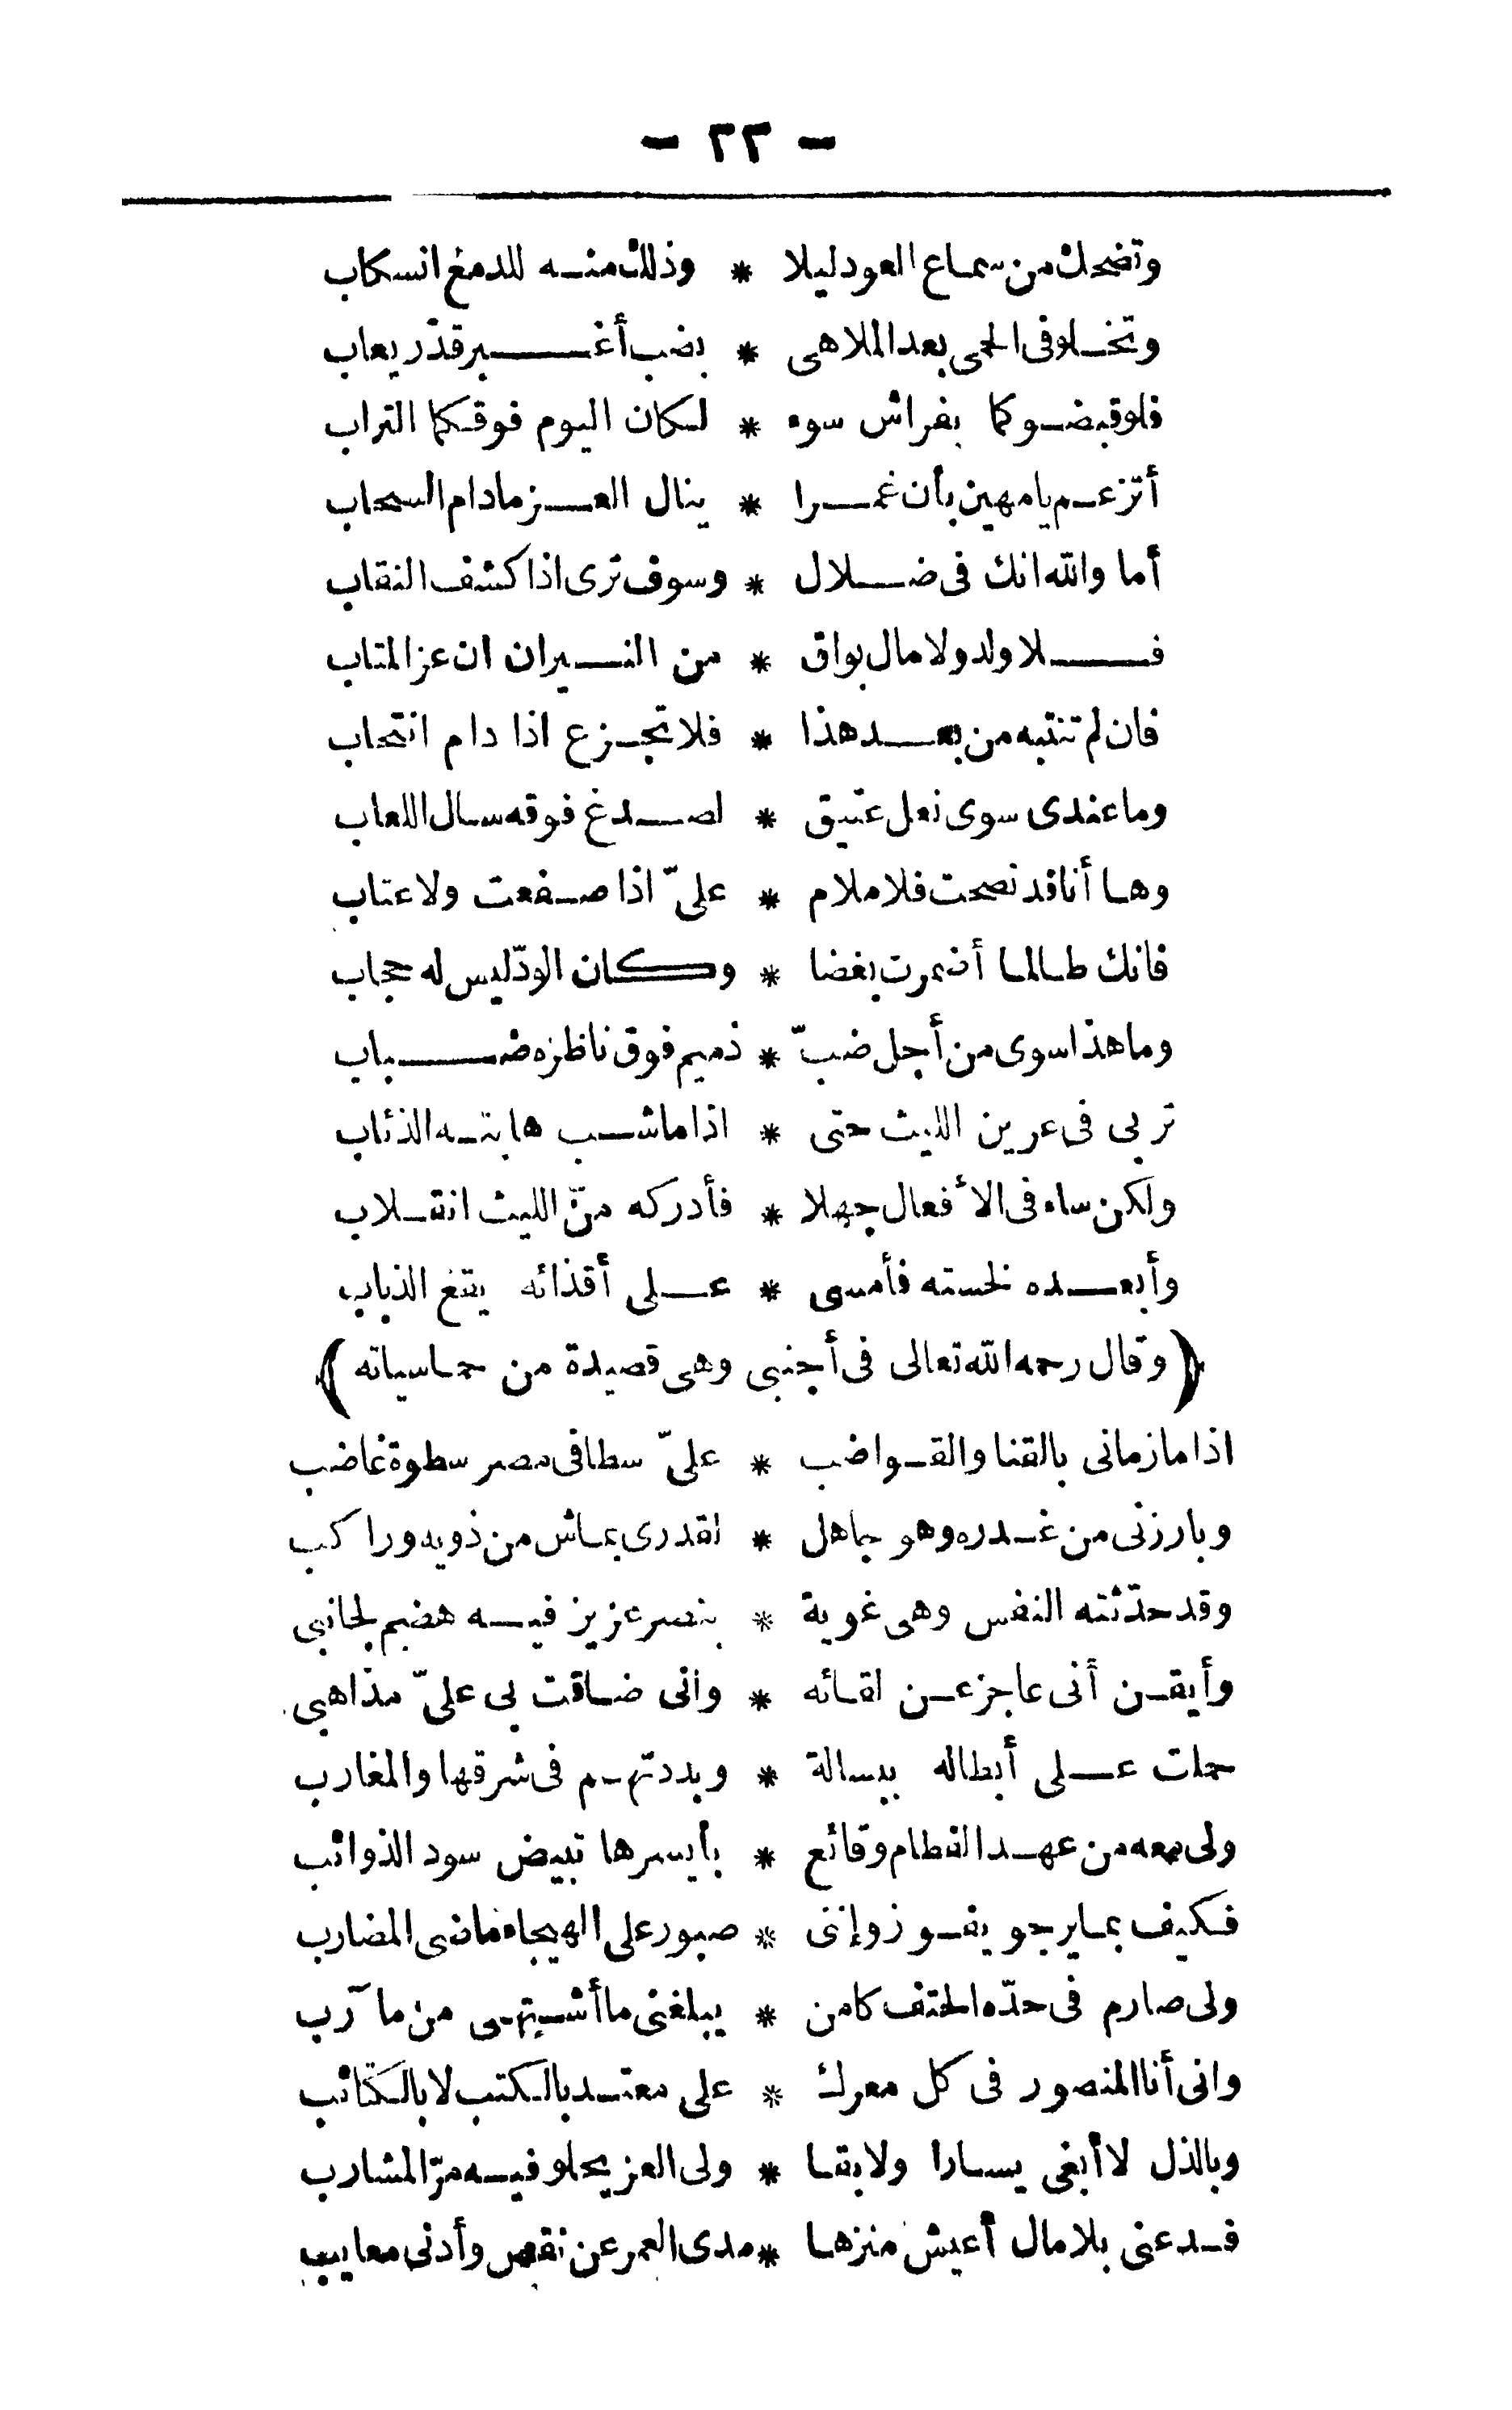 - ٢٣ -
وتضحك من سماع العود ليلا * وذلك منه للدمغ انسكاب
وتخلو فى الحمى بعد الملاهى * بضب أغبر قذر يعاب
فلو قبضوكما بفراش سوء * لكان اليوم فوقكما التراب
أتزعم يا مهين بأن غمرا * ينال العز ما دام السحاب
أما والله انك فى ضلال * وسوف ترى اذا كشف النقاب
فلا ولد ولا مال بواق * من النيران ان عز المتاب
فان لم تنتبه من بعد هذا * فلا تجزع اذا دام انتحاب
وما عندى سوى نعل عتيق * لصدغ فوقه سال اللعاب
وها أنا قد نصحت فلا ملام * علىّ اذا صفعت ولا عتاب
فانك طالما أضمرت بغضا * وكان الودّ ليس له حجاب
وما هذا سوى من أجل ضبّ * ذميم فوق ناظره ضباب
تربى فى عرين الليث حتى * اذا ما شب هابته الذئاب
ولكن ساء فى الأفعال جهلا * فأدركه منّ الليث انقلاب
وأبعده لخسته فأمسى * على أقذائه يقع الذباب
﴿ وقال رحمه الله تعالى فى أجنبى وهى قصيدة من حماسياته ﴾
اذا ما زمانى بالقنا والقواضب * علىّ سطا فى مصر سطوة غاضب
وبارزنى من غدره وهو جاهل * لقدرى بماش من ذويه وراكب
وقد حدّثته النفس وهى غوية * بنصر عزيز فيه هضم لجانبى
وأيقن أنى عاجز عن لقائه * وانى ضاقت بى علىّ مذاهبى
حملت على أبطاله ببسالة * وبددتهم فى شرقها والمغارب
ولى معه من عهد الفطام وقائع * بأيسرها تبيض سود الذوائب
فكيف بما يرجو يفوز وإننى * صبور على الهيجاء ماضى المضارب
ولى صارم فى حدّه الحتف كامن * يبلغنى ما أشتهى من مآرب
وانى أنا المنصور فى كل معرك * على معتد بالكتب لا بالكتائب
وبالذل لا أبغى يسارا ولا بقا * ولى العز يحلو فيه مرّ المشارب
فدعنى بلا مال أعيش منزها * مدى العمر عن نقص وأدنى معايب